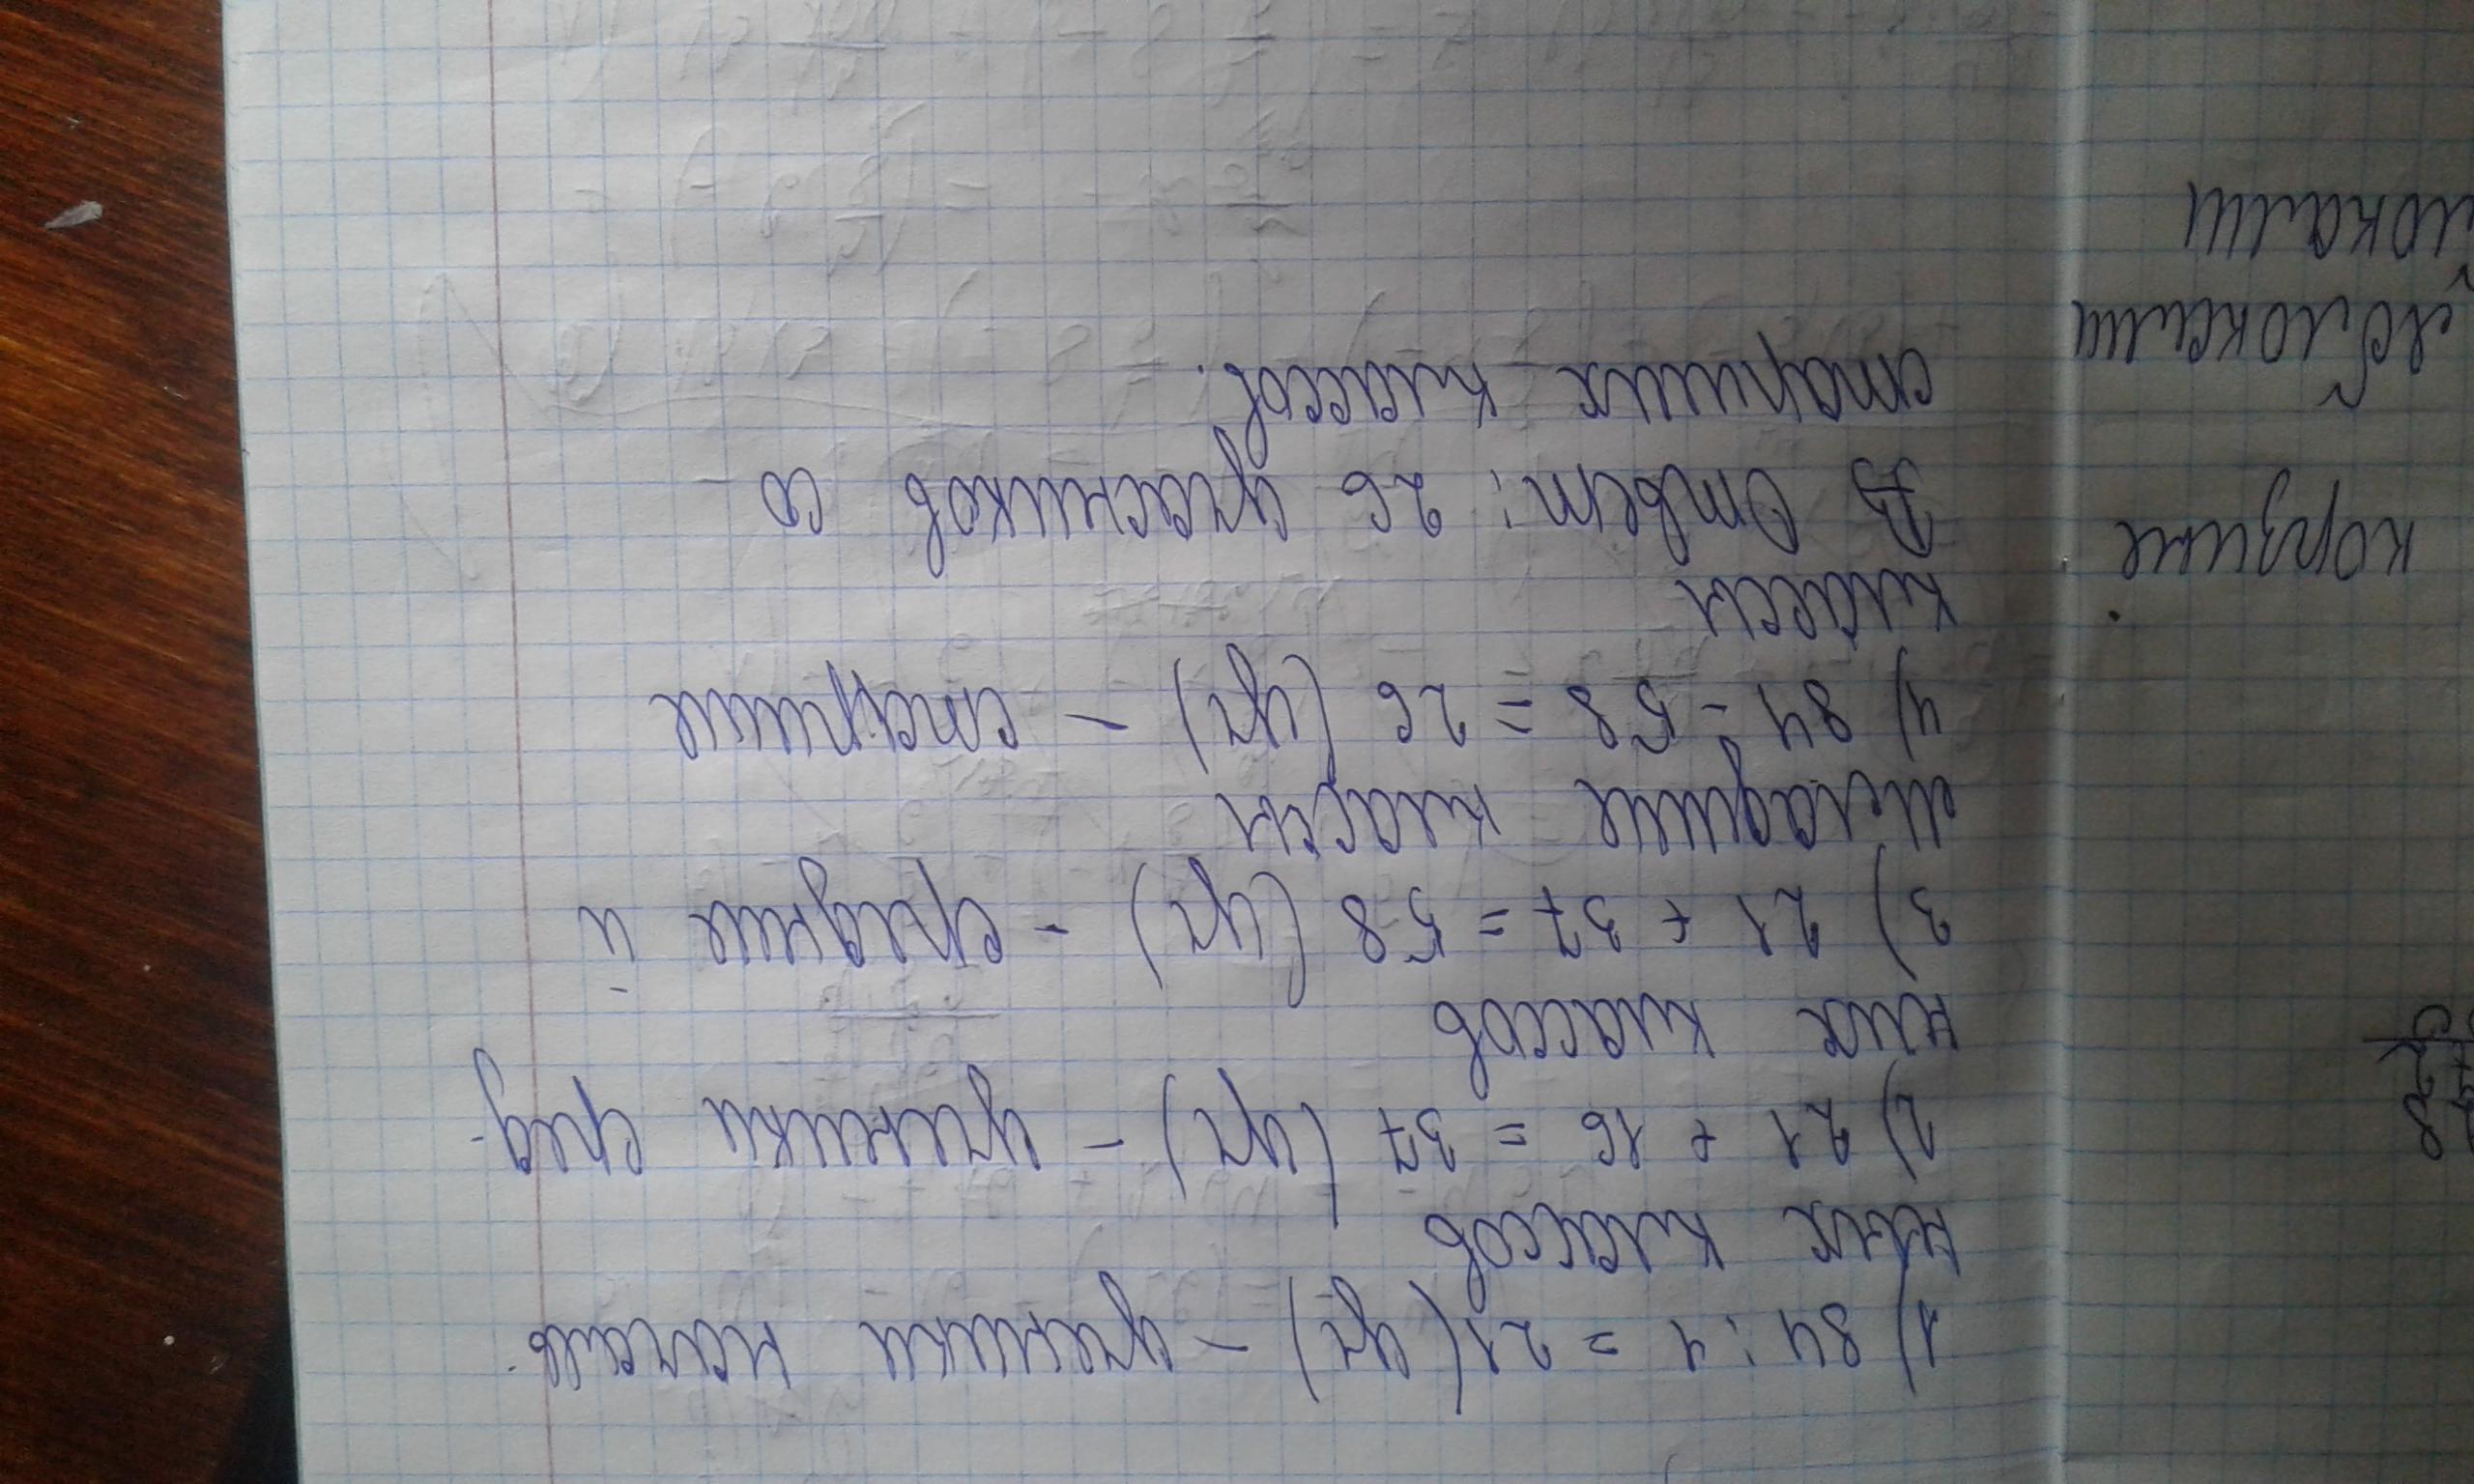 1) 84 : 4 = 21 (уч) - ученики началь-
ных классов
2) 21 + 16 = 37 (уч) - ученики сред-
них классов
3) 21 + 37 = 58 (уч) - средние и
младшие классы
4) 84 - 58 = 26 (уч) - старшие
классы
В Ответ: 26 участников со
старших классов.
корзине
яблоками
локами